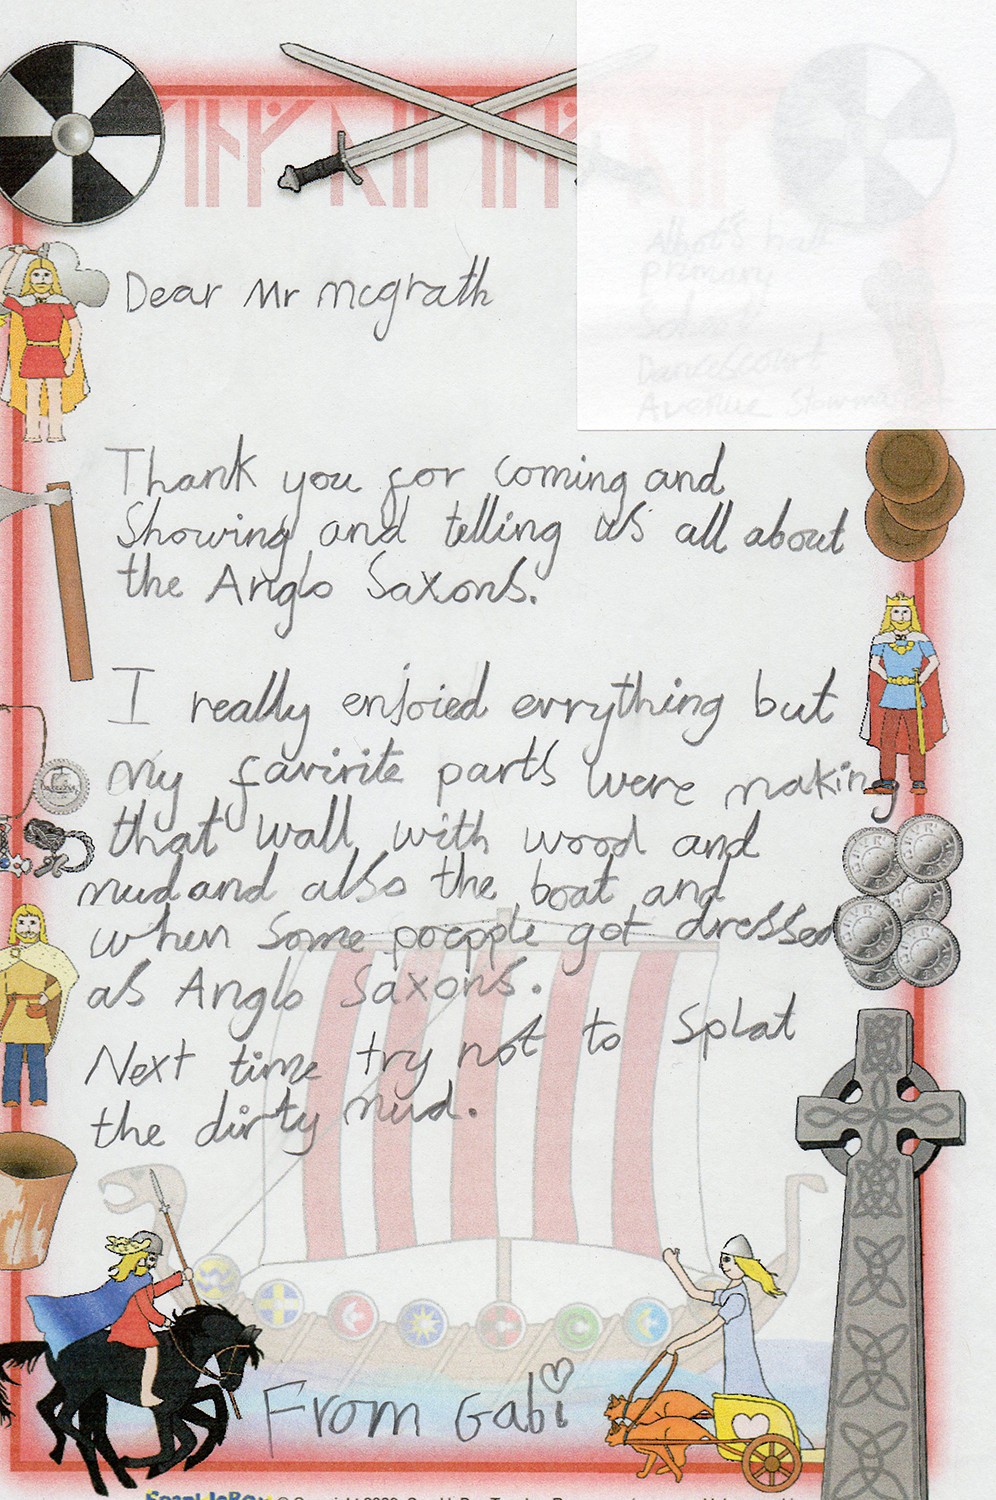 hall
primary
Avenue
Dear Mr mcgrath
Thank you for coming and
Showing and telling us all about
the Anglo Saxons.
I really enjoied errything but
my favirite parts were making
that wall with wood and
mud and also the boat and
when some poepple got dressed
as Anglo Saxons.
Next time try not to splat
the dirty mud.
From Gabi
© Copyright